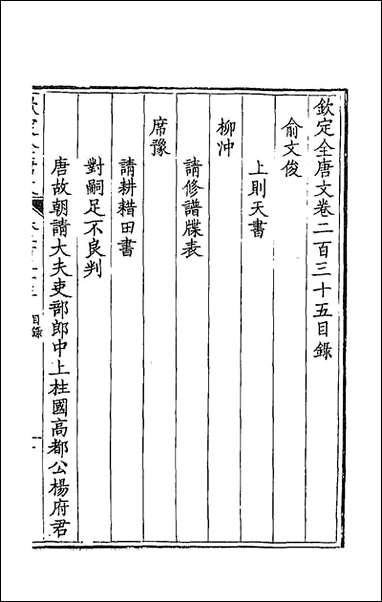 欽定全唐文卷二百三十五目錄
俞文俊
上則天書
柳沖
請修譜牒表
席豫
請耕耤田書
對嗣足不良判
唐故朝請大夫吏部郎中上柱國高都公楊府君
欽定全唐文
目錄